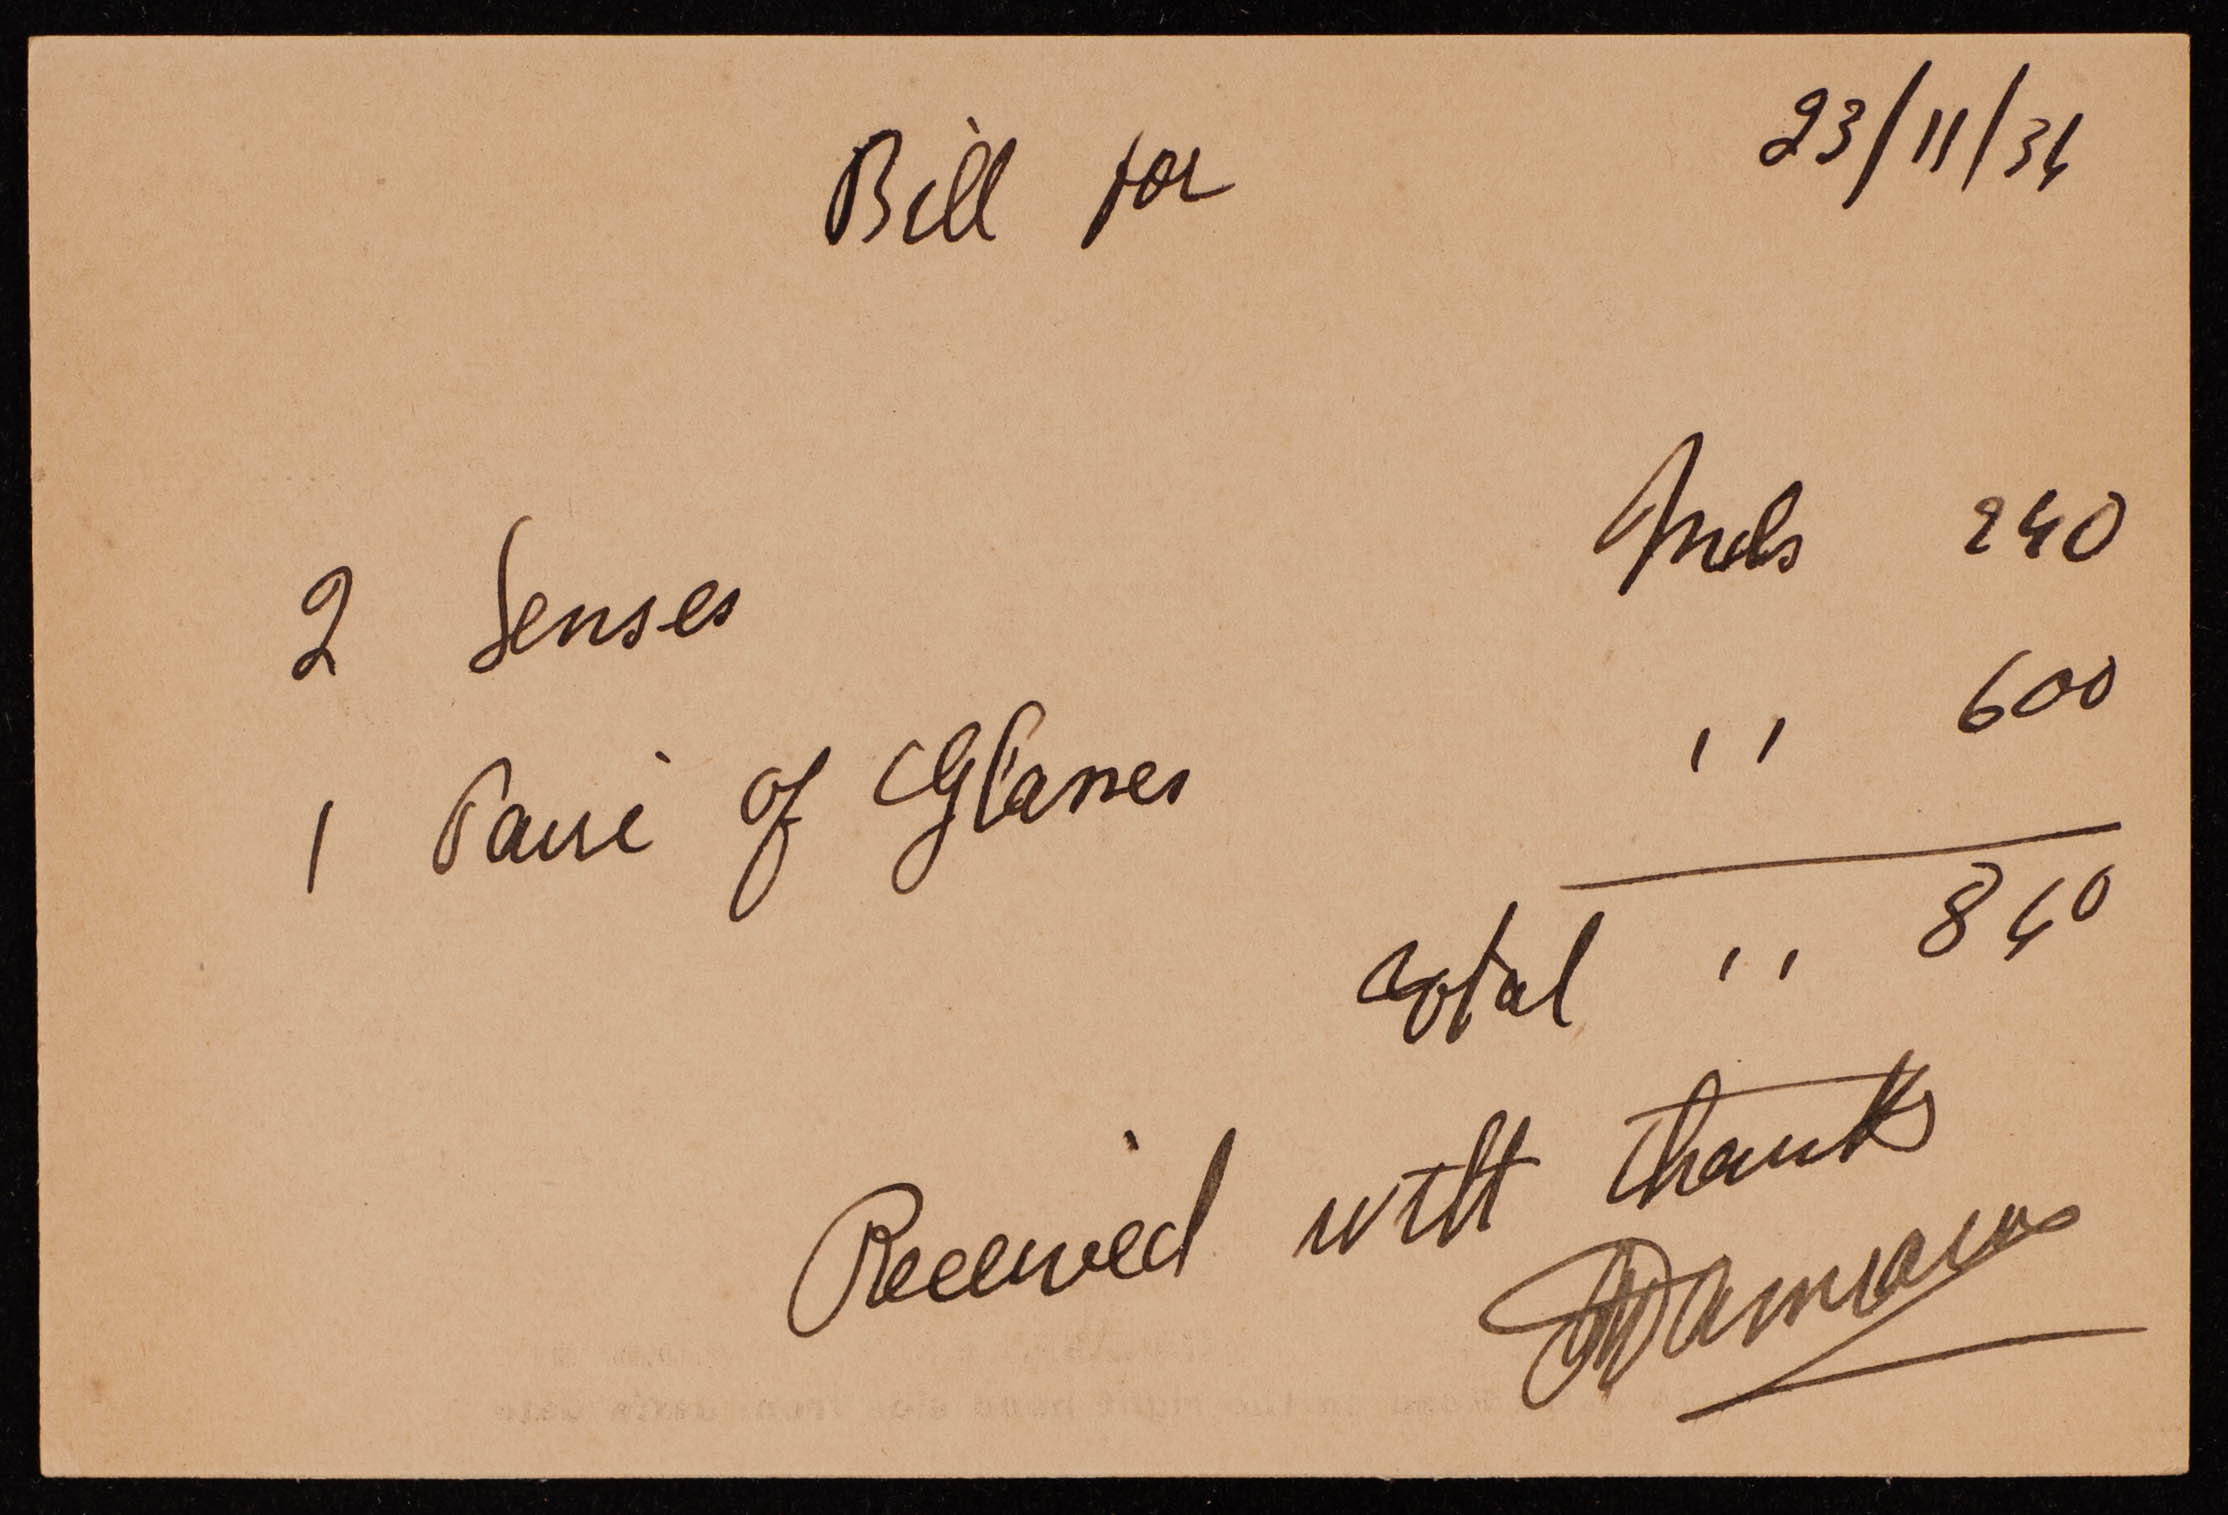 23/11/34
Bill for
2 Lenses Mils 240
1 Paire of Glasses ,, 600
Total ,, 840
Received with thanks